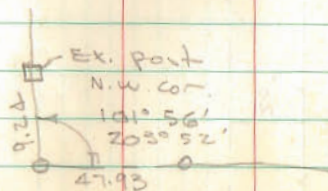 Ex. post
N.W. cor.
101° 56'
203° 52'
9.24
47.93